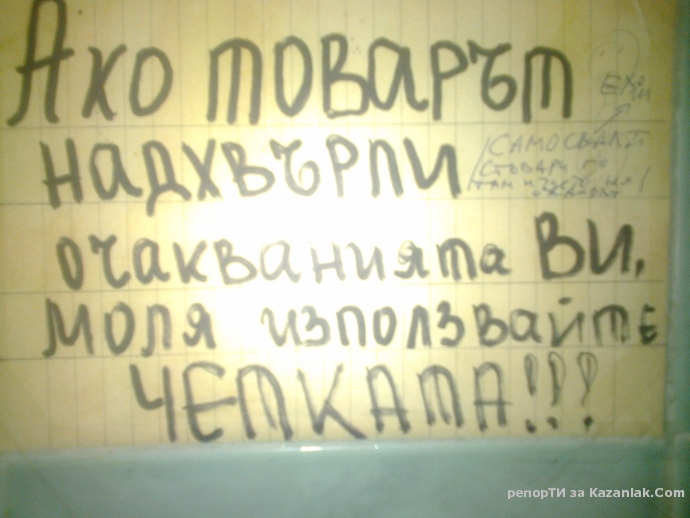 Ако товарът
надхвърли
очакванията Ви,
моля използвайте
ЧЕТКАТА!!!
САМОСВАЛЪТ
СТОВАРИ ГО
репорТИ за Kazanlak.Com